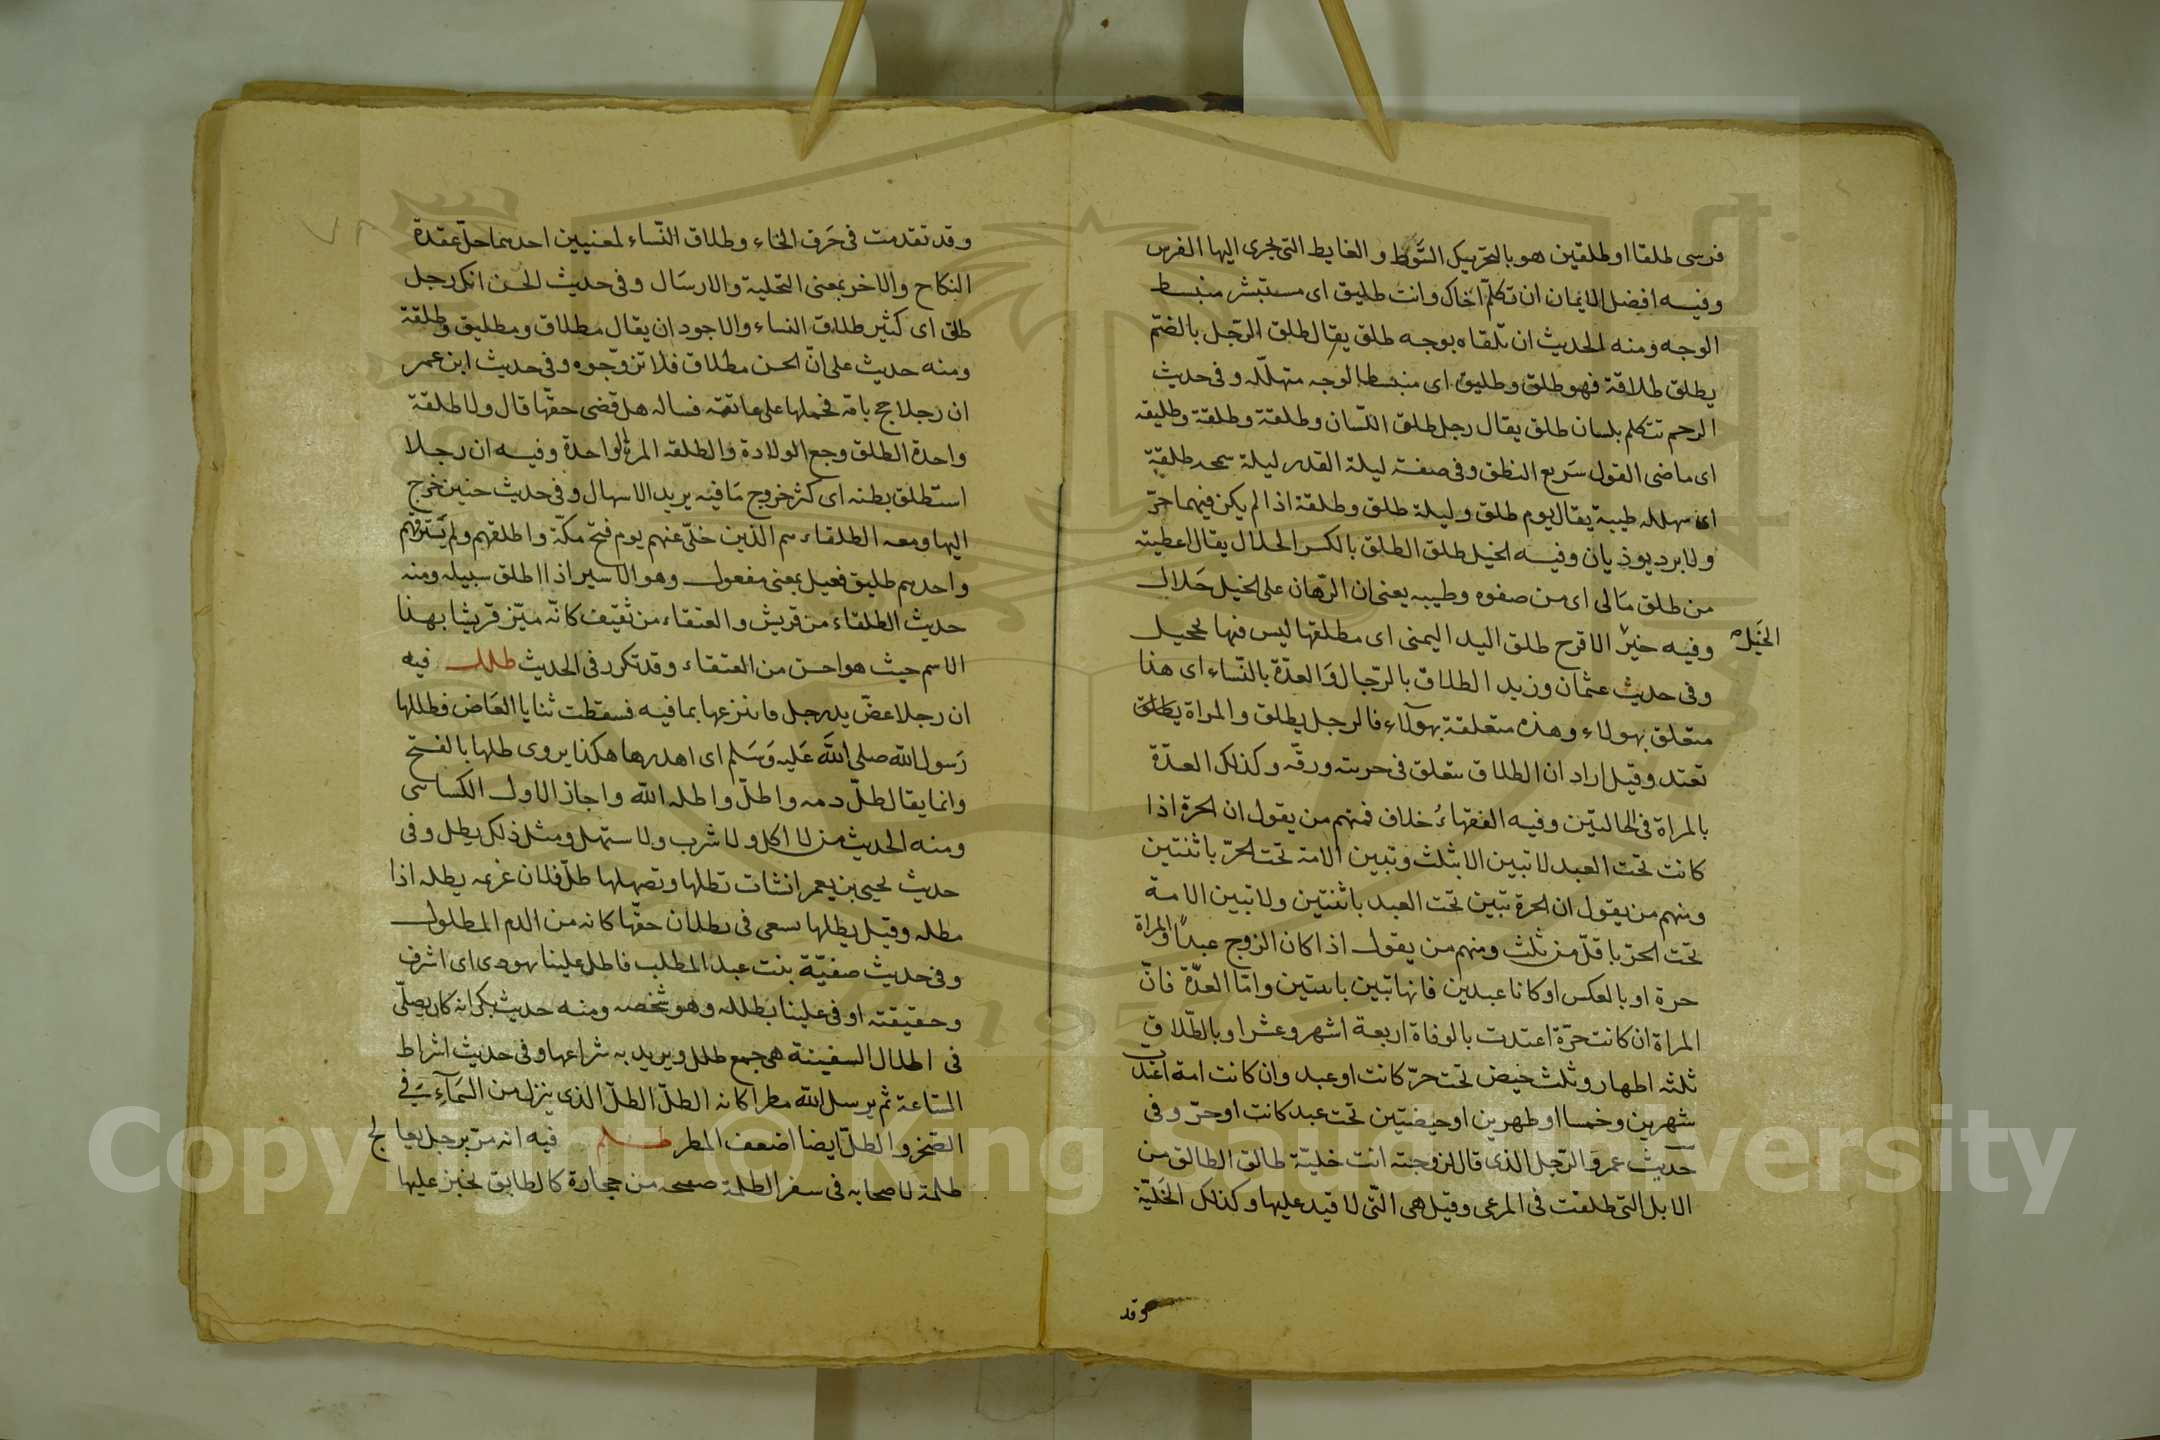 فرسى طلقا او طلقين هو بالتحريك الشوط والغايط التى تجرى اليها الفرس
وفيه افضل الايمان ان تكلم اخاك وانت طليق اى مستبشر منبسط
الوجه ومنه الحديث ان تلقاه بوجه طلق يقال طلق الرّجل بالضّم
يطلق طلاقة فهو طلق وطليق اى منبسط الوجه متهلّله وفى حديث
الرحم تتكلم بلسان طلق يقال رجل طلق اللسان وطلقة وطلقة وطليقه
اى ماضى القول سَريع النطق وفى صفة ليلة القدر ليلة سمحه طلقة
اى سهله طيبة يقال يوم طلق وليلة طلق وطلقة اذا لم يكن فيهما حرّ
ولا برد يوذيان وفيه الخيل طلق الطلق بالكسر الحلال يقال اعطيته
من طلق مَالى اى من صفوه وطيبه يعنى ان الرّهان على الخيل حَلال
وفيه خير الاقرح طلق اليد اليمنى اى مطلقها ليس فيها تحجيل
الخَيل
وفى حديث عثمان وزيد الطلاق بالرّجال وَالعدّة بالنّساء اى هذا
متعلق بهولاء وهذه متعلقة بهولاء فالرجل يطلق والمراة يطلق
تعتد وقيل اراد ان الطلاق يتعلق فى حريته ورقّه وكذلك العدّة
بالمراة فى الحالتين وفيه الفقهاءُ خلاف فمنهم من يقول ان الحرة اذا
كانت تحت العبد لا تبين الا بثلث وتبين الامة تحت الحرّ باثنتين
ومنهم من يقول ان الحرة تبين تحت العبد باثنتين ولا تبين الامة
تحت الحرّ باقلّ من ثلث ومنهم من يقول اذا كان الزوج عبدًا والمراة
حرة او بالعكس او كانا عبدين فانها تبين باثنتين وامّا العدّة فانّ
المراة ان كانت حرّة اعتدت بالوفاة اربعة اشهر وعشرا وبالطّلاق
ثلثة اطهار وثلث حيض تحت حرّ كانت او عبد وان كانت امة اعتدت
شهرين وخمسا او طهرين او حيضتين تحت عبد كانت او حرّ وفى
حديث عمر وَالرّجل الذى قال لزوجته انت خليّة طالق الطالق من
الابل التى طلقت فى المرعى وقيل هى الّتى لا قيد عليها وكذلك الخَليّة
وقد
وقد تقدمت فى حَرف الخاء وطلاق النّساء لمعنيين احدهما حلّ عقدة
النكاح والاخر بمعنى التخلية والارسَال وفى حديث الحسن انك رجل
طلق اى كثير طلاق النساء والاجود ان يقال مطلاق ومطليق وطلقة
ومنه حديث على انّ الحسن مطلاق فلا تزوّجوه وفى حديث ابن عمر
ان رجلا حج بامّه فحملها على عاتقه فساله هل قضى حقّها قال ولا طلقة
واحدة الطلق وجع الولادة والطلقه المرة الواحدة وفيه ان رجلا
استطلق بطنه اى كثر خروج مَا فيه يريد الاسهال وفى حديث حنين خرج
اليها ومعه الطلقاء هم الذين خلّى عنهم يوم فتح مكّة واطلقهم ولم يَسترقهم
واحدهم طليق فعيل بمعنى مفعول وهو الاسير اذا اطلق سبيله ومنه
حديث الطلقاء من قريش والعتقاء من ثقيف كانّه ميّز قريشا بهذا
الاسم حيث هو احسن من العتقاء وقد تكرر فى الحديث طلل فيه
ان رجلا عضّ يد رجل فانتزعها بما فيه فسقطت ثنايا العَاض فطلها
رَسول الله صلى الله عَليه وَسَلم اى اهدرها هكذا يروى طلها بالفتح
وانما يقال طلّ دمه واطلّ واطله الله واجاز الاول الكساسى
ومنه الحديث من لا اكل ولا شرب ولا استهل ومثل ذلك يطل وفى
حديث يحيى بن يعمر انشات تطلها وتضهلها طلّ فلان غريمه يطله اذا
مطله وقيل يطلها يسعى فى بطلان حقّها كانه من الدم المطلول
وفى حديث صفيّة بنت عبد المطلب فاطل علينا يهودى اى اشرف
وحقيقته اوفى علينا بطلله وهو شخصه ومنه حديث بكر انه كان يصلّى
فى اطلال السفينة هى جمع طلل ويريد به شراعها وفى حديث اشراط
السّاعة ثم يرسل الله مطرا كانه الطلّ الطلّ الذى ينزل من السّمَآءِ فى
الصّحْو والطلّ ايضا اضعف المطر طلم فيه انه مرّ برجل يعالج
طلمة لاصحابه فى سفر الطلمة صفيحه من حجارة كالطابق يخبز عليها
Copyright © King Saud University